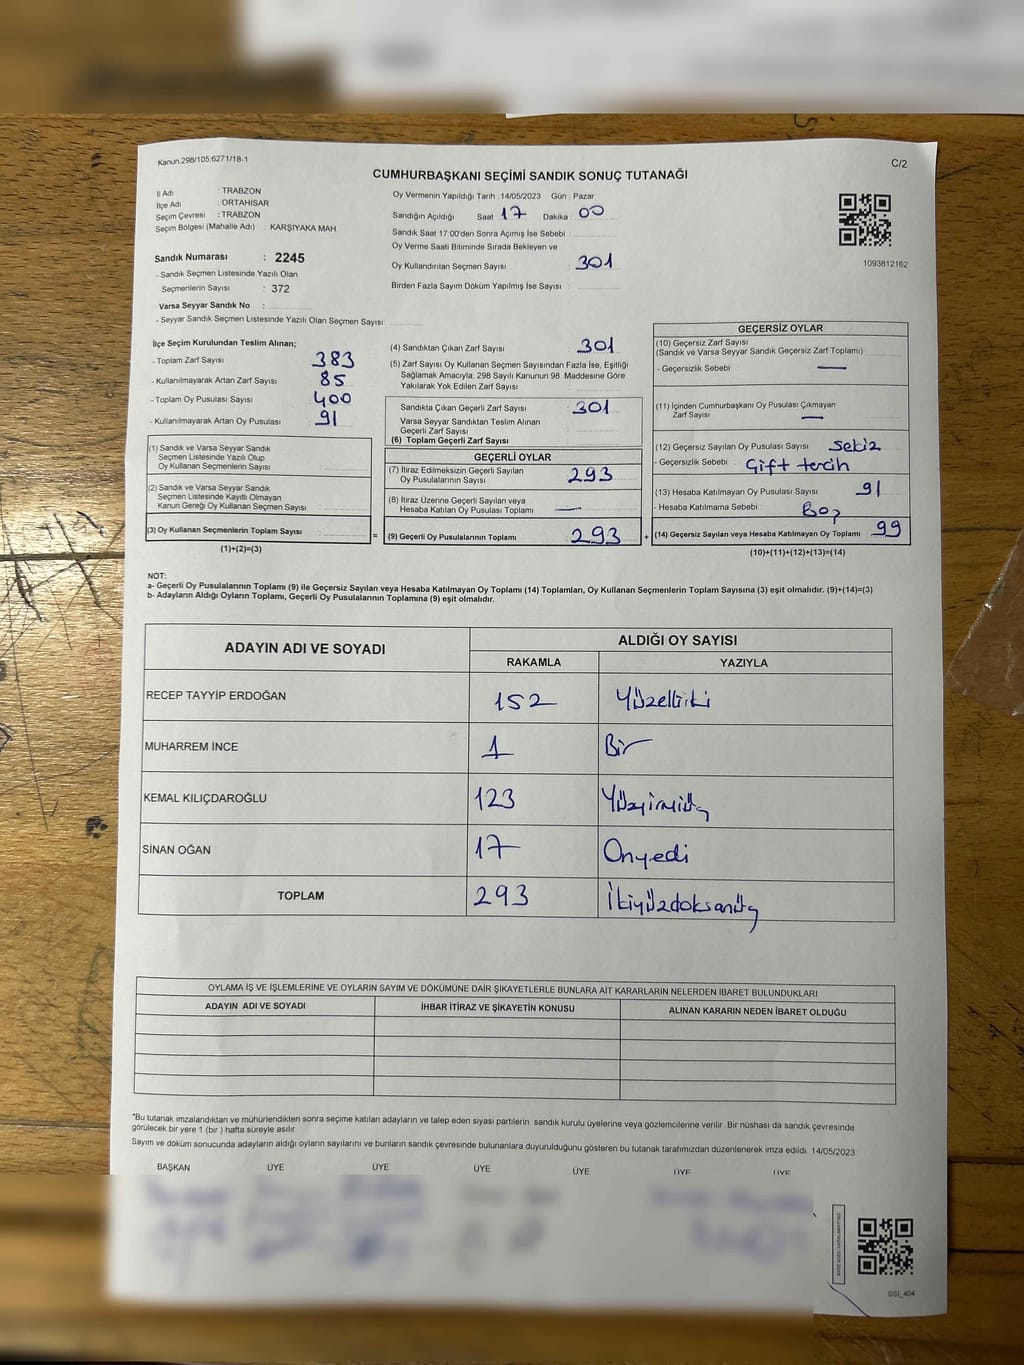 Kanun.298/105,6271/18-1
C/2
CUMHURBAŞKANI SEÇİMİ SANDIK SONUÇ TUTANAĞI
İl Adı : TRABZON
İlçe Adı : ORTAHİSAR
Seçim Çevresi : TRABZON
Seçim Bölgesi (Mahalle Adı) : KARŞIYAKA MAH.
Sandık Numarası : 2245
- Sandık Seçmen Listesinde Yazılı Olan
Seçmenlerin Sayısı : 372
Varsa Seyyar Sandık No :
- Seyyar Sandık Seçmen Listesinde Yazılı Olan Seçmen Sayısı:
Oy Vermenin Yapıldığı Tarih : 14/05/2023 Gün : Pazar
Sandığın Açıldığı Saat 17 Dakika : 00
Sandık Saat 17:00'den Sonra Açımış İse Sebebi :
Oy Verme Saati Bitiminde Sırada Bekleyen ve
Oy Kullandırılan Seçmen Sayısı : 301
Birden Fazla Sayım Döküm Yapılmış İse Sayısı :
1093812162
İlçe Seçim Kurulundan Teslim Alınan;
- Toplam Zarf Sayısı : 383
- Kullanılmayarak Artan Zarf Sayısı : 85
- Toplam Oy Pusulası Sayısı : 400
- Kullanılmayarak Artan Oy Pusulası : 91
(1) Sandık ve Varsa Seyyar Sandık
Seçmen Listesinde Yazılı Olup
Oy Kullanan Seçmenlerin Sayısı :
(2) Sandık ve Varsa Seyyar Sandık
Seçmen Listesinde Kayıtlı Olmayan
Kanun Gereği Oy Kullanan Seçmen Sayısı :
(3) Oy Kullanan Seçmenlerin Toplam Sayısı :
(1)+(2)=(3)
(4) Sandıktan Çıkan Zarf Sayısı : 301
(5) Zarf Sayısı Oy Kullanan Seçmen Sayısından Fazla İse, Eşitliği
Sağlamak Amacıyla, 298 Sayılı Kanunun 98. Maddesine Göre
Yakılarak Yok Edilen Zarf Sayısı :
Sandıkta Çıkan Geçerli Zarf Sayısı : 301
Varsa Seyyar Sandıktan Teslim Alınan
Geçerli Zarf Sayısı :
(6) Toplam Geçerli Zarf Sayısı :
GEÇERLİ OYLAR
(7) İtiraz Edilmeksizin Geçerli Sayılan
Oy Pusulalarının Sayısı : 293
(8) İtiraz Üzerine Geçerli Sayılan veya
Hesaba Katılan Oy Pusulası Toplamı : —
= (9) Geçerli Oy Pusulalarının Toplamı : 293 +
GEÇERSİZ OYLAR
(10) Geçersiz Zarf Sayısı
(Sandık ve Varsa Seyyar Sandık Geçersiz Zarf Toplamı) :
- Geçersizlik Sebebi : —
(11) İçinden Cumhurbaşkanı Oy Pusulası Çıkmayan
Zarf Sayısı : —
(12) Geçersiz Sayılan Oy Pusulası Sayısı : sekiz
- Geçersizlik Sebebi : Çift tercih
(13) Hesaba Katılmayan Oy Pusulası Sayısı : 91
- Hesaba Katılmama Sebebi : Boş
(14) Geçersiz Sayılan veya Hesaba Katılmayan Oy Toplamı : 99
(10)+(11)+(12)+(13)=(14)
NOT:
a- Geçerli Oy Pusulalarının Toplamı (9) ile Geçersiz Sayılan veya Hesaba Katılmayan Oy Toplamı (14) Toplamları, Oy Kullanan Seçmenlerin Toplam Sayısına (3) eşit olmalıdır. (9)+(14)=(3)
b- Adayların Aldığı Oyların Toplamı, Geçerli Oy Pusulalarının Toplamına (9) eşit olmalıdır.
ADAYIN ADI VE SOYADI
ALDIĞI OY SAYISI
RAKAMLA YAZIYLA
RECEP TAYYİP ERDOĞAN 152 Yüzelliiki
MUHARREM İNCE 1 Bir
KEMAL KILIÇDAROĞLU 123 Yüzyirmiüç
SİNAN OĞAN 17 Onyedi
TOPLAM 293 İkiyüzdoksanüç
OYLAMA İŞ VE İŞLEMLERİNE VE OYLARIN SAYIM VE DÖKÜMÜNE DAİR ŞİKAYETLERLE BUNLARA AİT KARARLARIN NELERDEN İBARET BULUNDUKLARI
ADAYIN ADI VE SOYADI İHBAR İTİRAZ VE ŞİKAYETİN KONUSU ALINAN KARARIN NEDEN İBARET OLDUĞU
*Bu tutanak imzalandıktan ve mühürlendikten sonra seçime katılan adayların ve talep eden siyasi partilerin sandık kurulu üyelerine veya gözlemcilerine verilir. Bir nüshası da sandık çevresinde
görülecek bir yere 1 (bir ) hafta süreyle asılır.
Sayım ve döküm sonucunda adayların aldığı oyların sayılarını ve bunların sandık çevresinde bulunanlara duyurulduğunu gösteren bu tutanak tarafımızdan düzenlenerek imza edildi. 14/05/2023
BAŞKAN ÜYE ÜYE ÜYE ÜYE ÜYE ÜYE
SSI_404